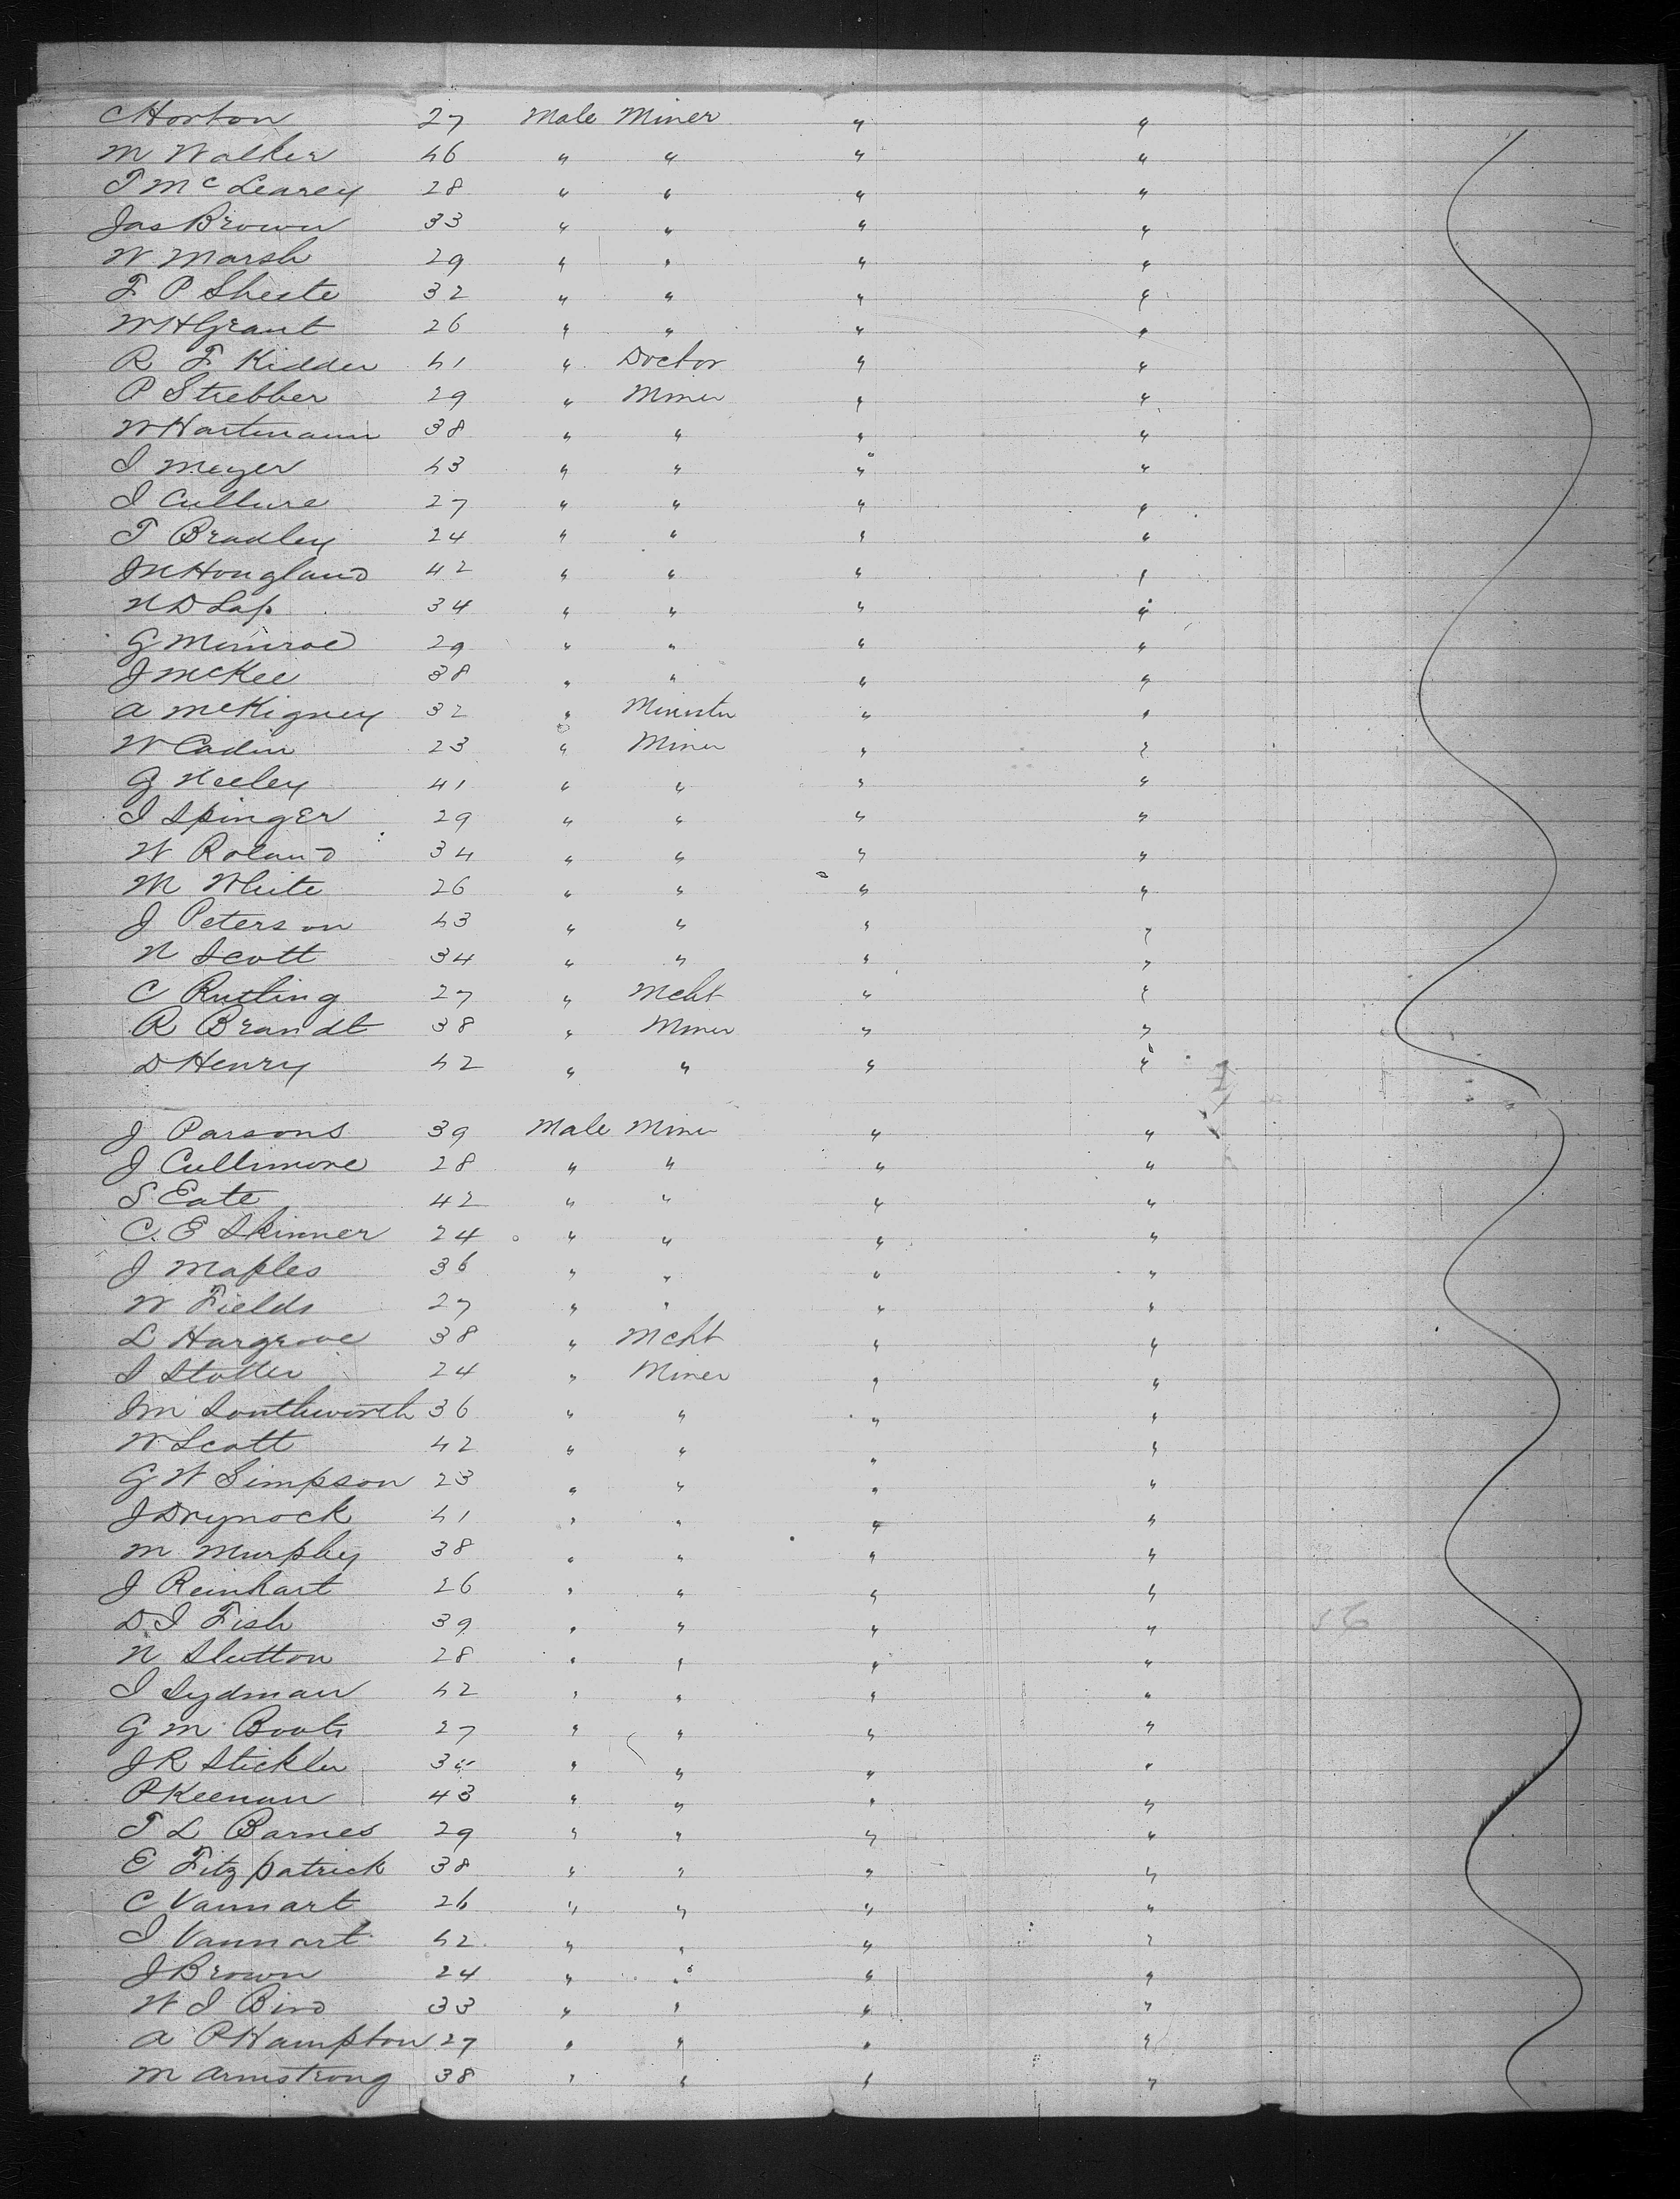 C Horton 27 Male Miner " "
M Walker 46 " " " "
T McLearey 28 " " " "
Jas Brown 33 " " " "
W Marsh 29 " " " "
F P Sheete 32 " " " "
W H Grant 26 " " " "
R F Kidder 41 " Doctor " "
P Strebber 29 " Miner " "
W Hartmann 38 " " " "
I Meyer 43 " " " "
I Cullure 27 " " " "
T Bradley 24 " " " "
J N Hougland 42 " " " "
N D Lap 34 " " " "
G Munroe 29 " " " "
J McKee 38 " " " "
A McKigney 32 " Minister " "
W Cadin 23 " Miner " "
G Neeley 41 " " " "
I Spinger 29 " " " "
W Roland 34 " " " "
M White 26 " " " "
J Peterson 43 " " " "
N Scott 34 " " " "
C Rutling 27 " Mcht " "
R Brandt 38 " Miner " "
D Henry 42 " " " "
J Parsons 39 Male Miner " "
J Cullimore 28 " " " "
S Eate 42 " " " "
C. E Skinner 24 " " " "
J Maples 36 " " " "
W Fields 27 " " " "
L Hargrove 38 " Mcht " "
S 24 " Miner " "
J M Southworth 36 " " " "
W Scott 42 " " " "
G W Simpson 23 " " " "
J Drynock 41 " " " "
M Murphy 38 " " " "
J Reinhart 26 " " " "
D. I Fish 39 " " " "
N Slutton 28 " " " "
I Sydman 42 " " " "
G M Boots 27 " " " "
J R Stickler " " " "
P Keenan 43 " " " "
T L Barnes 29 " " " "
E Fitzpatrick 38 " " " "
C Vannart 26 " " " "
I Vannart 42 " " " "
J Brown 24 " " " "
W I Bird 33 " " " "
A P Hampton 27 " " " "
M Armstrong 38 " " " "